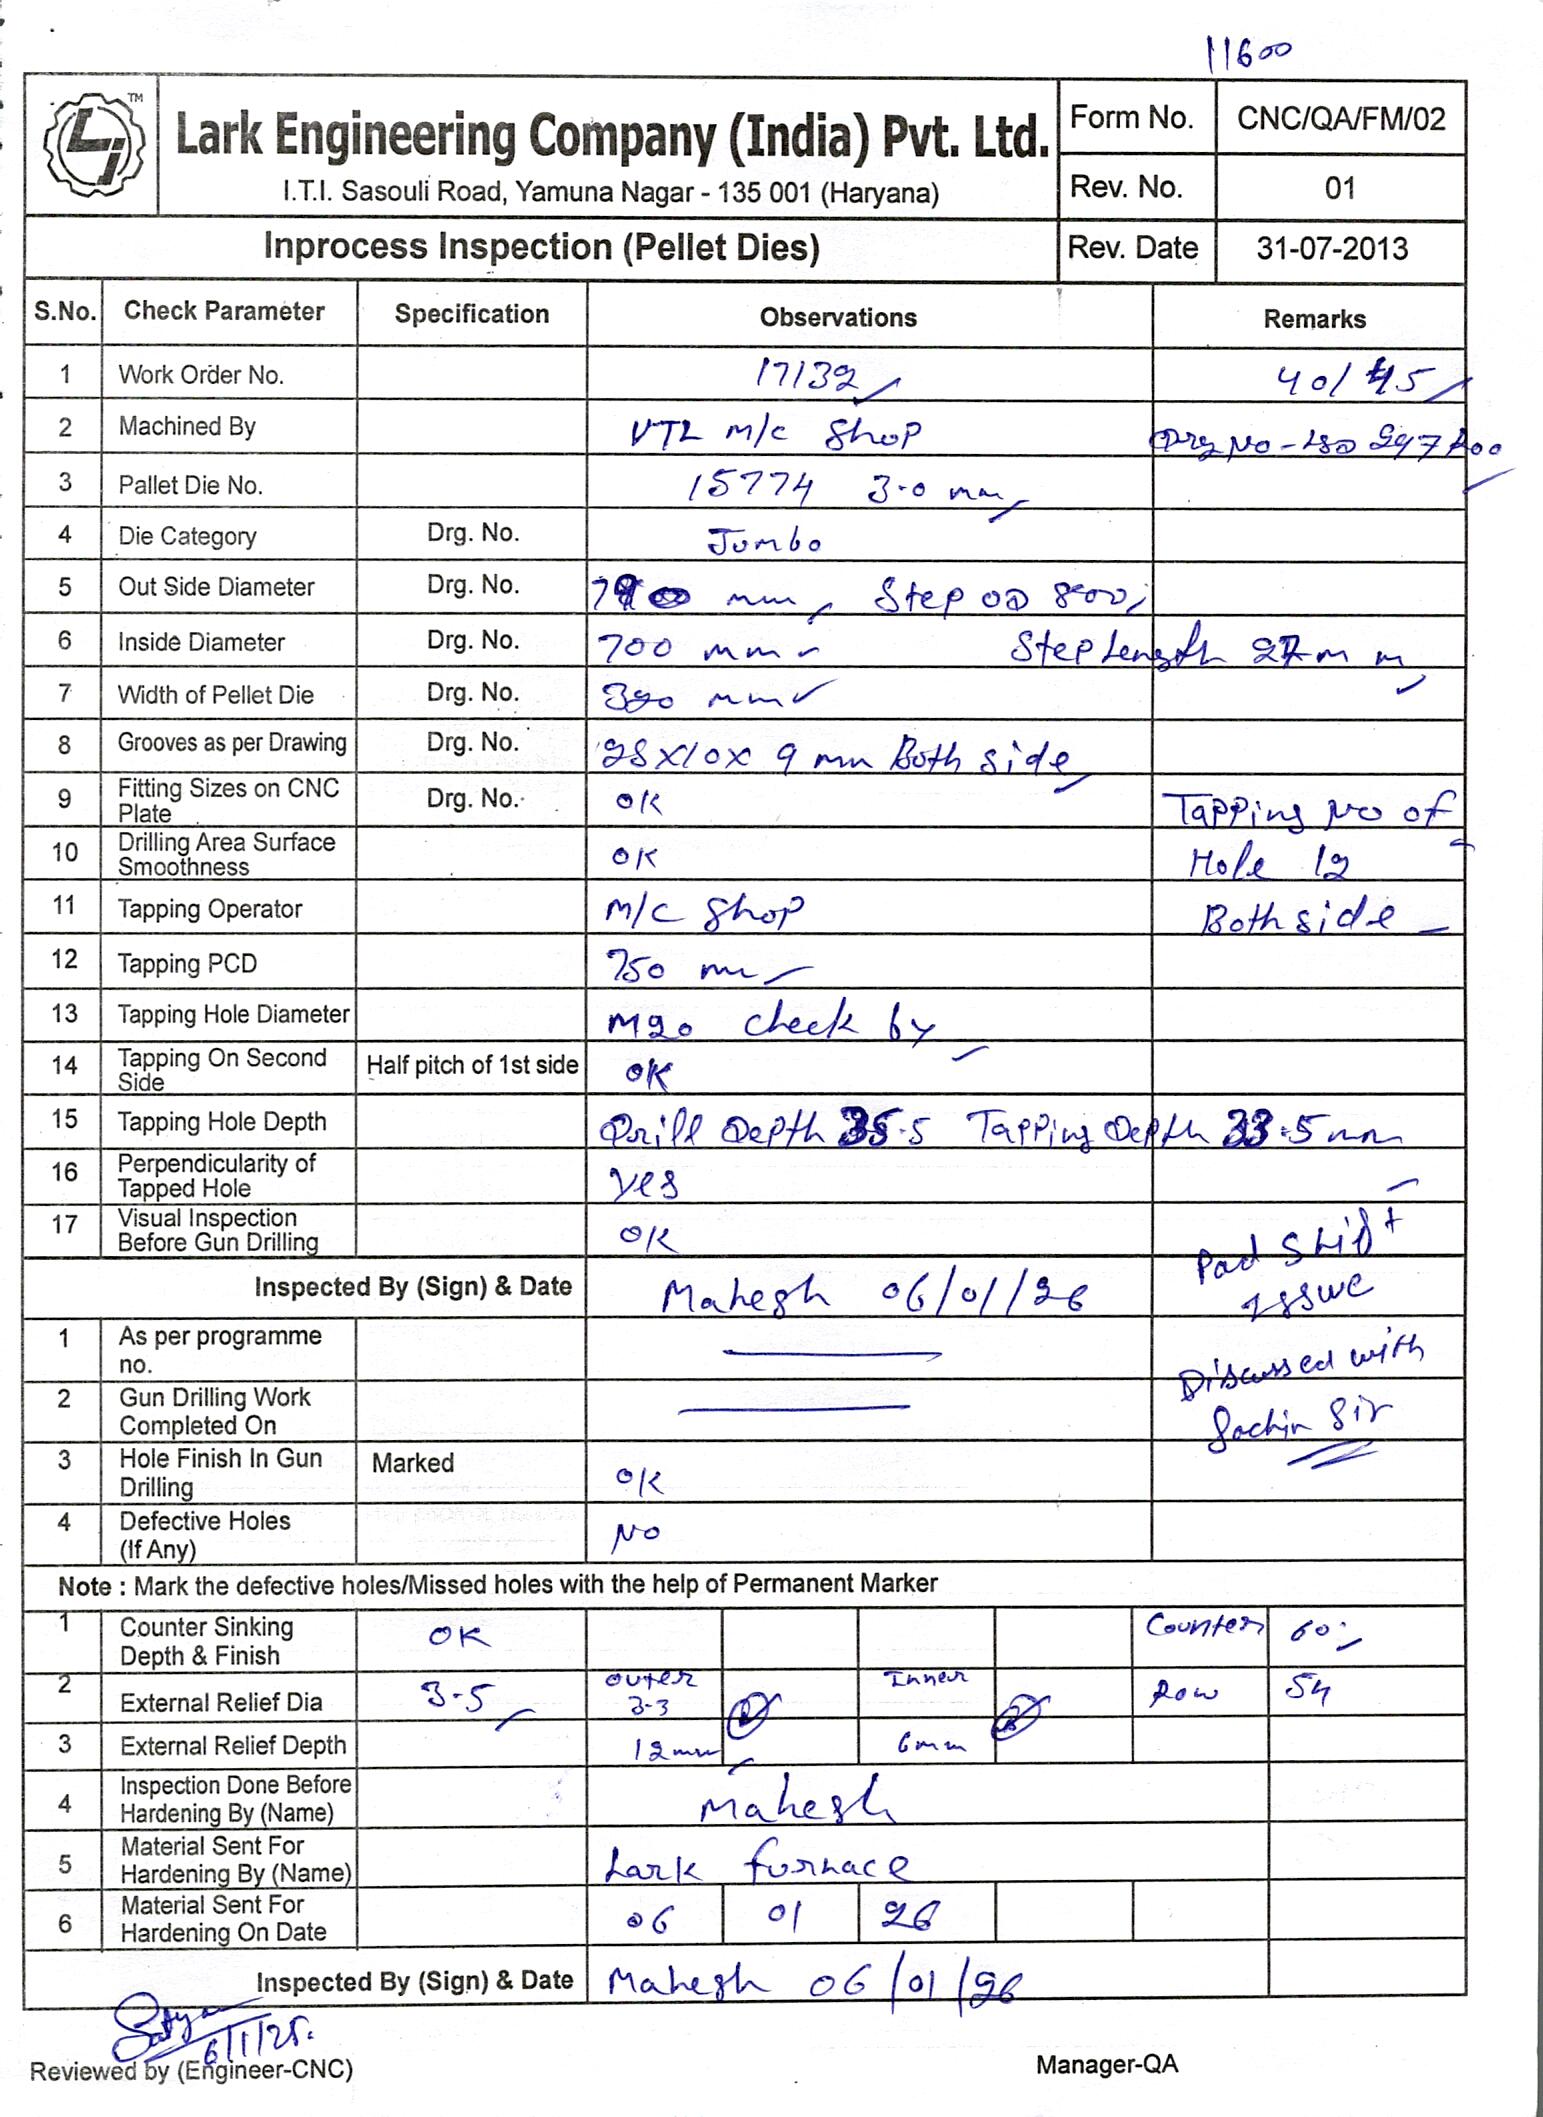 11600
TM
Lark Engineering Company (India) Pvt. Ltd.
I.T.I. Sasouli Road, Yamuna Nagar - 135 001 (Haryana)
Form No. CNC/QA/FM/02
Rev. No. 01
Inprocess Inspection (Pellet Dies) Rev. Date 31-07-2013
S.No. Check Parameter Specification Observations Remarks
1 Work Order No. 17132 40/45
2 Machined By VTL M/C Shop Drg No -
3 Pallet Die No. 15774 3.0 mm
4 Die Category Drg. No. Jumbo
5 Out Side Diameter Drg. No. mm Step OD 800
6 Inside Diameter Drg. No. 700 mm Step Length 27 mm
7 Width of Pellet Die Drg. No. 320 mm
8 Grooves as per Drawing Drg. No. 28x10x 9 mm Both side
9 Fitting Sizes on CNC Plate Drg. No. OK Tapping No of
10 Drilling Area Surface Smoothness OK Hole 12
11 Tapping Operator M/C Shop Both side
12 Tapping PCD 750 mm
13 Tapping Hole Diameter M20 check by
14 Tapping On Second Side Half pitch of 1st side OK
15 Tapping Hole Depth Drill Depth 35.5 Tapping Depth 33.5 mm
16 Perpendicularity of Tapped Hole Yes
17 Visual Inspection Before Gun Drilling OK
Pad Shift
Issue
Inspected By (Sign) & Date Mahesh 06/01/26
1 As per programme no.
Discussed with
Sachin Sir
2 Gun Drilling Work Completed On
3 Hole Finish In Gun Drilling Marked OK
4 Defective Holes (If Any) NO
Note : Mark the defective holes/Missed holes with the help of Permanent Marker
1 Counter Sinking Depth & Finish OK Counter 60°
2 External Relief Dia 3.5 Outer 3.3 Inner Row 54
3 External Relief Depth 12mm 6mm
4 Inspection Done Before Hardening By (Name) Mahesh
5 Material Sent For Hardening By (Name) Lark furnace
6 Material Sent For Hardening On Date 06 01 26
Inspected By (Sign) & Date Mahesh 06/01/26
6/1/25.
Reviewed by (Engineer-CNC) Manager-QA